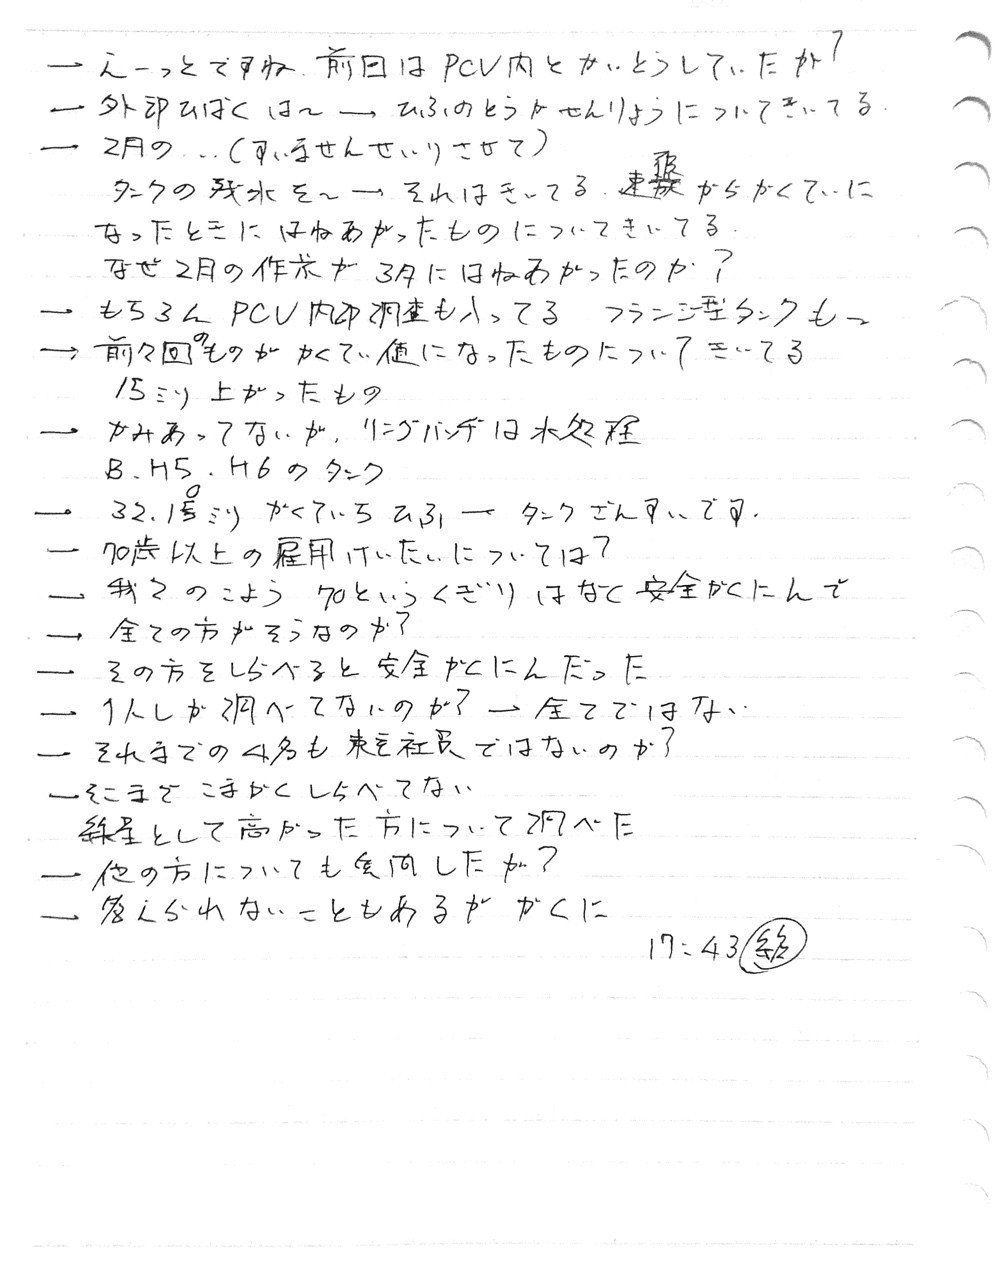 ― えーっとですね 前回は PCV内とかいとうしていたが?
― 外部ひばくは〜 → ひふのとうかせんりょうについてきいてる.
― 2月の...(すいませんせいりさせて)
タンクの残水を〜 → それはきいてる. 速報からかくていに
なったときにはねあがったものについてきいてる.
なぜ2月の作業が3月にはねあがったのか?
― もちろん PCV内部調査も入ってる フランジ型タンクも〜
→ 前々回のものがかくてい値になったものについてきいてる
15ミリ上がったもの
― かみあってないが、リングハンチは水処理
B.H5.H6のタンク
― 32.10ミリ かくていち ひふ ― タンクざんすいです.
― 70歳以上の雇用けいたいについては?
― 我々のこよう 70というくぎりはなく安全かくにんで
→ 全ての方がそうなのか?
― その方をしらべると安全かくにんだった
― 1人しか調べてないのか? → 全てではない
― それまでの4名も東芝社員ではないのか?
― そこまでこまかくしらべてない
線量として高かった方について調べた
― 他の方についても質問したが?
― 答えられないこともあるがかくに
17:43 終